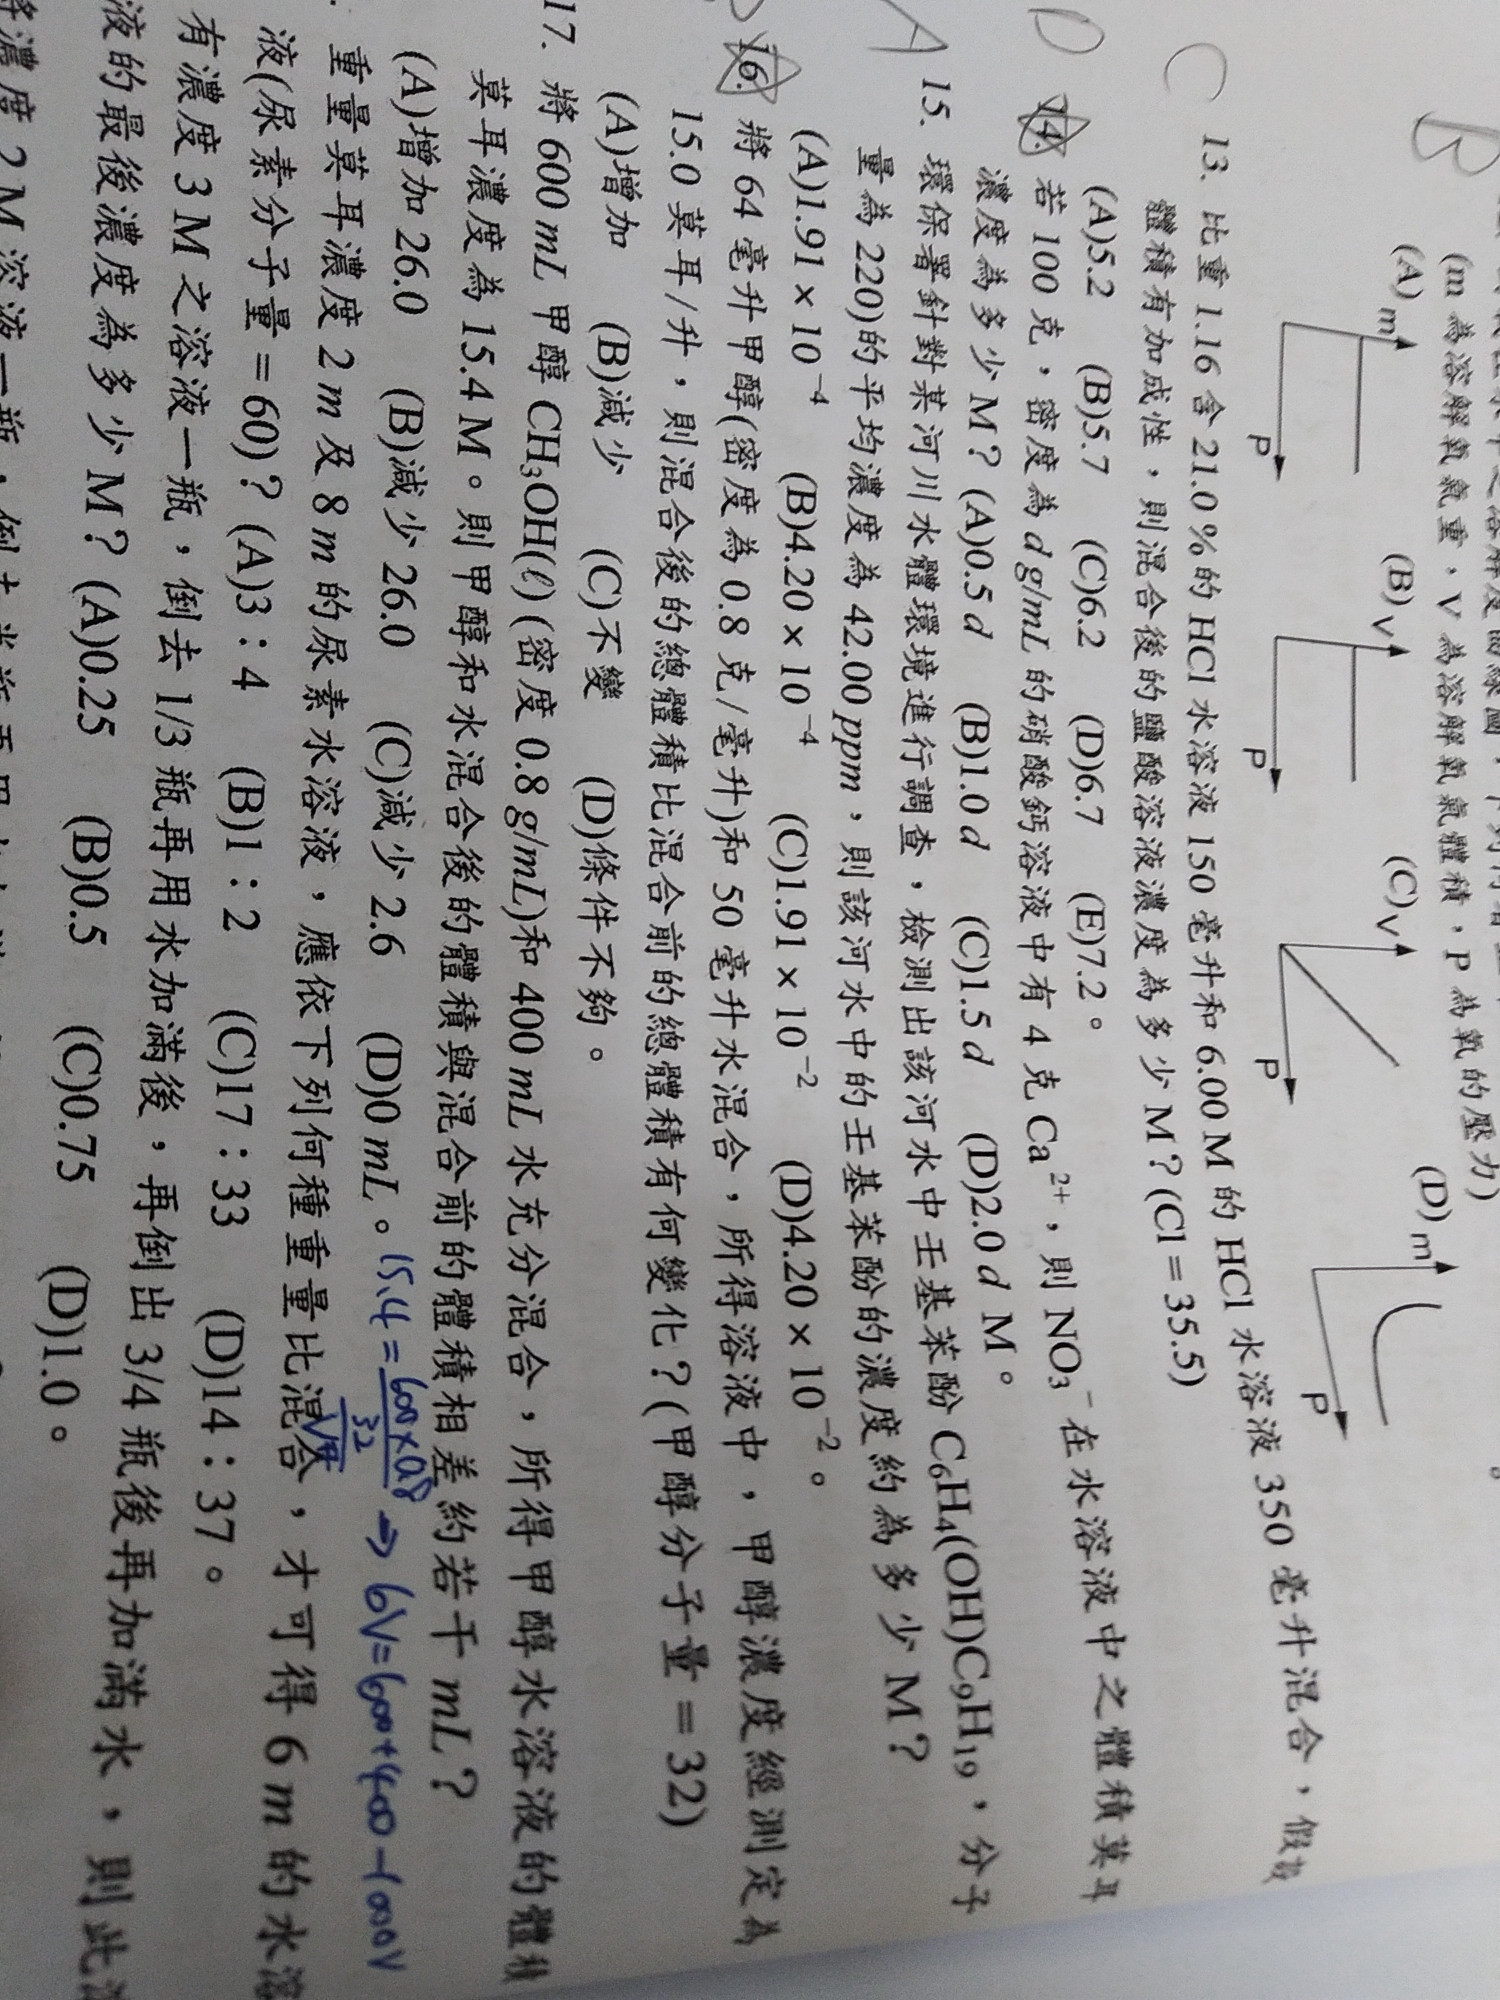 (m 為溶解氧氣重，V 為溶解氧氣體積，P 為氧的壓力)
(A) m P (B) V P (C) V P (D) m P
B
C 13. 比重 1.16 含 21.0％的 HCl 水溶液 150 毫升和 6.00 M 的 HCl 水溶液 350 毫升混合，假設
體積有加成性，則混合後的鹽酸溶液濃度為多少 M？(Cl＝35.5)
(A)5.2 (B)5.7 (C)6.2 (D)6.7 (E)7.2。
D 14. 若 100 克，密度為 d g/mL 的硝酸鈣溶液中有 4 克 Ca²⁺，則 NO₃⁻ 在水溶液中之體積莫耳
濃度為多少 M？(A)0.5 d (B)1.0 d (C)1.5 d (D)2.0 d M。
A 15. 環保署針對某河川水體環境進行調查，檢測出該河水中壬基苯酚 C₆H₄(OH)C₉H₁₉，分子
量為 220)的平均濃度為 42.00 ppm，則該河水中的壬基苯酚的濃度約為多少 M？
(A)1.91 × 10⁻⁴ (B)4.20 × 10⁻⁴ (C)1.91 × 10⁻² (D)4.20 × 10⁻²。
16. 將 64 毫升甲醇(密度為 0.8 克/毫升)和 50 毫升水混合，所得溶液中，甲醇濃度經測定為
15.0 莫耳/升，則混合後的總體積比混合前的總體積有何變化？(甲醇分子量＝32)
(A)增加 (B)減少 (C)不變 (D)條件不夠。
17. 將 600 mL 甲醇 CH₃OH(ℓ)(密度 0.8 g/mL)和 400 mL 水充分混合，所得甲醇水溶液的體積
莫耳濃度為 15.4 M。則甲醇和水混合後的體積與混合前的體積相差約若干 mL？
(A)增加 26.0 (B)減少 26.0 (C)減少 2.6 (D)0 mL。 15.4 = 600×0.8 32 → 6V=600+400-1000V
重量莫耳濃度 2 m 及 8 m 的尿素水溶液，應依下列何種重量比混合，才可得 6 m 的水溶
液(尿素分子量＝60)？(A)3：4 (B)1：2 (C)17：33 (D)14：37。
有濃度 3 M 之溶液一瓶，倒去 1/3 瓶再用水加滿後，再倒出 3/4 瓶後再加滿水，則此溶
液的最後濃度為多少 M？(A)0.25 (B)0.5 (C)0.75 (D)1.0。
將濃度 2 M 溶液一瓶，倒